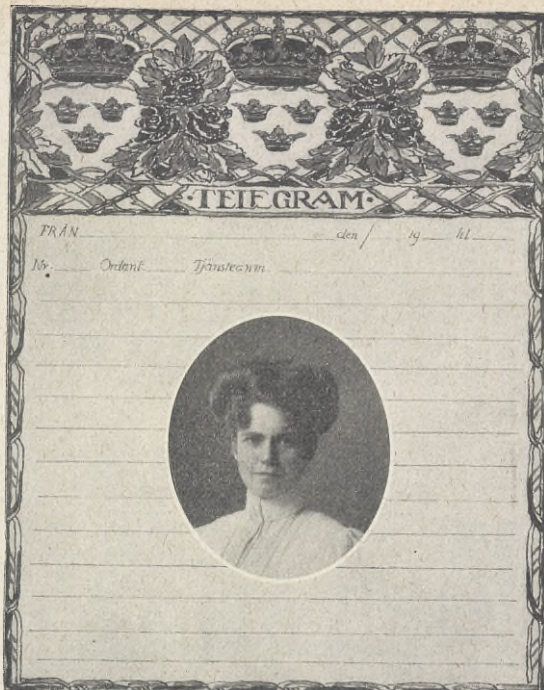 ·TELEGRAM·
FRÅN den / 19 kl
Nr. Ordant. Tjänsteanm.